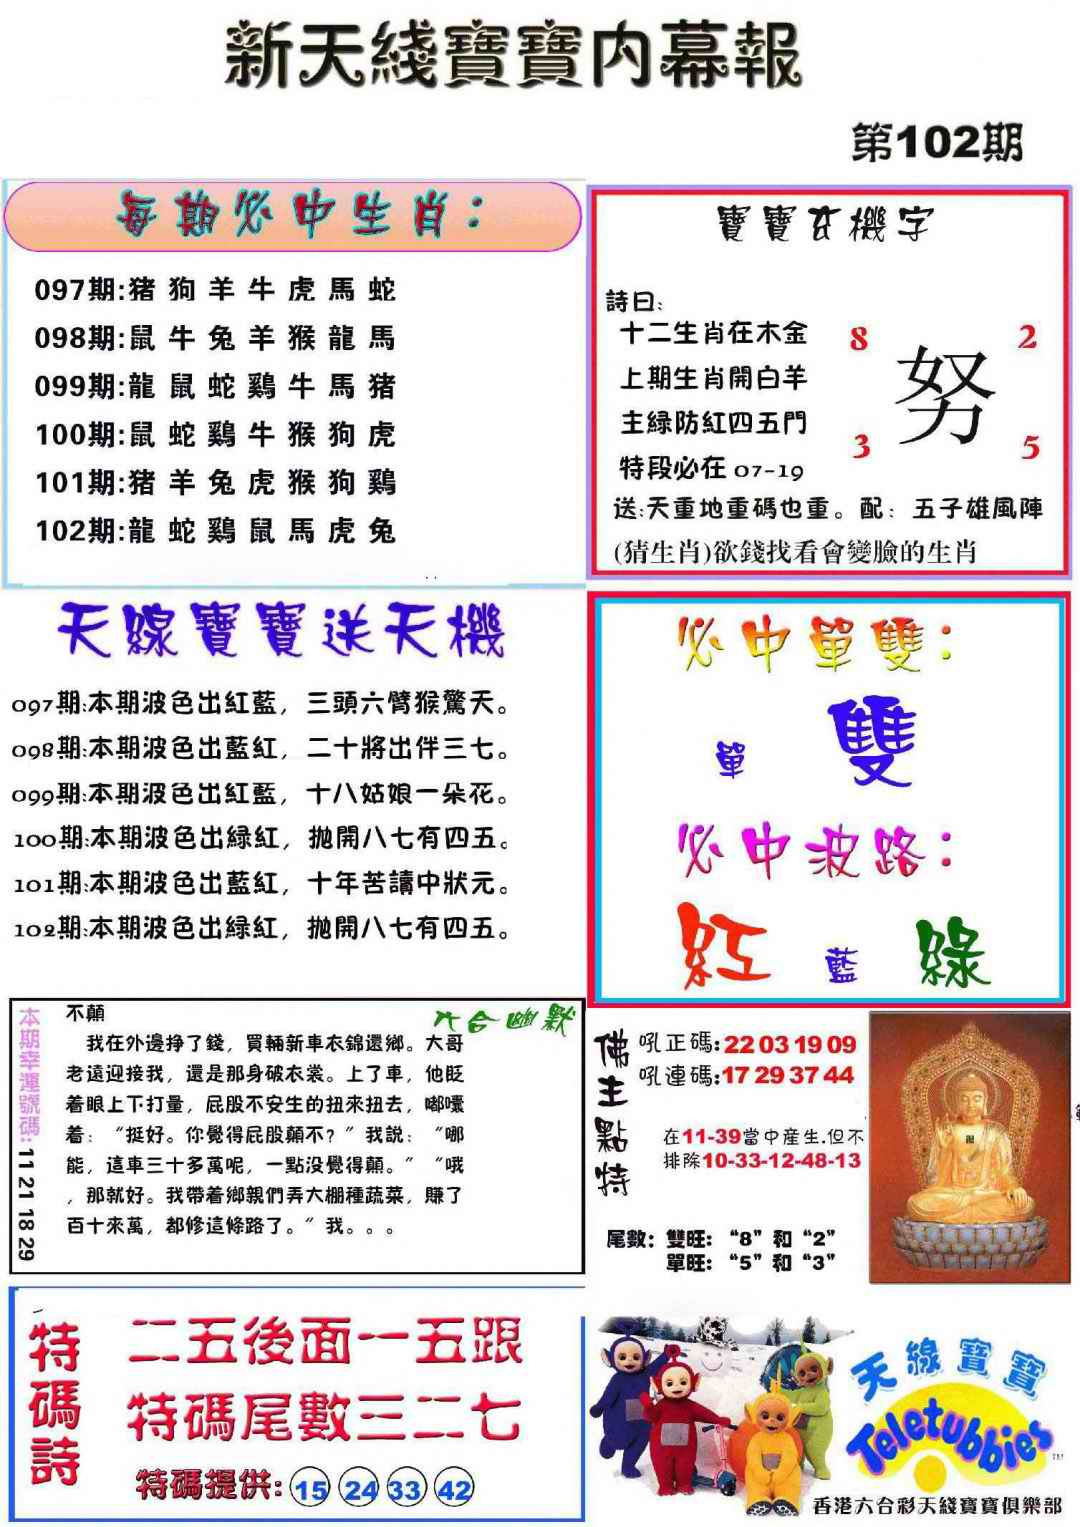 新天綫寶寶内幕報
第102期
每期必中生肖：
097期:猪 狗 羊 牛 虎 馬 蛇
098期:鼠 牛 兔 羊 猴 龍 馬
099期:龍 鼠 蛇 鷄 牛 馬 猪
100期:鼠 蛇 鷄 牛 猴 狗 虎
101期:猪 羊 兔 虎 猴 狗 鷄
102期:龍 蛇 鷄 鼠 馬 虎 兔
寶寶玄機字
詩曰:
十二生肖在木金
上期生肖開白羊
主緑防紅四五門
特段必在 07-19
8 2
努
3 5
送:天重地重碼也重。配：五子雄風陣
(猜生肖)欲錢找看會變臉的生肖
天線寶寶送天機
097期:本期波色出紅藍，三頭六臂猴驚天。
098期:本期波色出藍紅，二十將出伴三七。
099期:本期波色出紅藍，十八姑娘一朵花。
100期:本期波色出緑紅，抛開八七有四五。
101期:本期波色出藍紅，十年苦讀中狀元。
102期:本期波色出緑紅，抛開八七有四五。
必中單雙：
單 雙
必中波路：
紅 藍 綠
本期幸運號碼: 11 21 18 29
六合幽默
不顛
我在外邊掙了錢，買輛新車衣錦還鄉。大哥
老遠迎接我，還是那身破衣裳。上了車，他眨
着眼上下打量，屁股不安生的扭來扭去，嘟囔
着：“挺好。你覺得屁股顛不？”我說：“哪
能，這車三十多萬呢，一點没覺得顛。”“哦
，那就好。我帶着鄉親們弄大棚種蔬菜，賺了
百十來萬，都修這條路了。”我。。。
佛主點特
吼正碼:22 03 19 09
吼連碼:17 29 37 44
在11-39當中産生.但不
排除10-33-12-48-13
尾數：雙旺：“8”和“2”
單旺：“5”和“3”
特碼詩
二五後面一五跟
特碼尾數三二七
特碼提供: 15 24 33 42
天線寶寶
Teletubbies
TM
香港六合彩天綫寶寶俱樂部